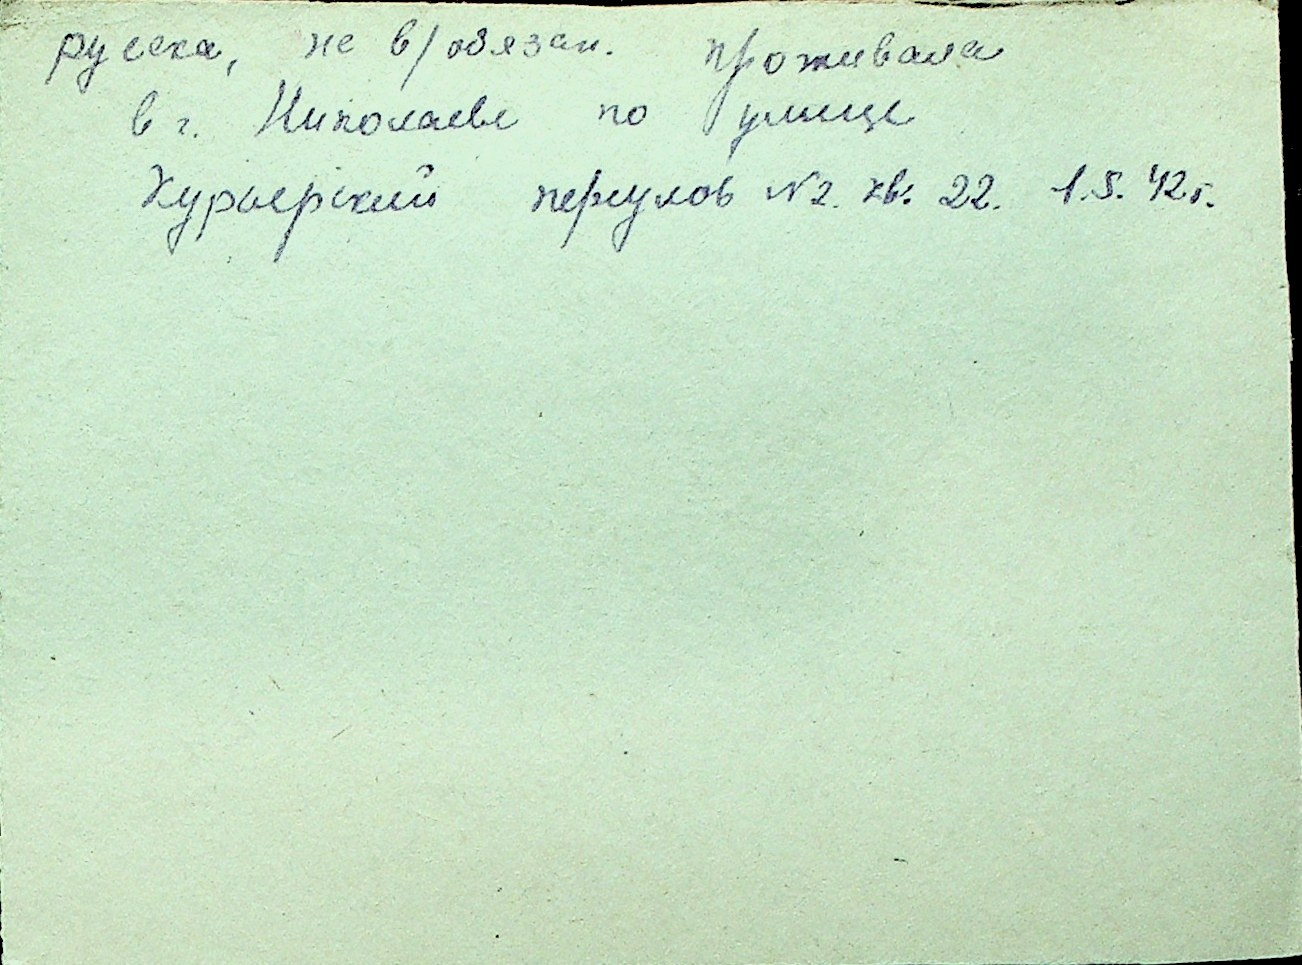 русска, не в/обязан. проживала
в г. Николаеве по улице
Курьерский переулов №2. кв. 22. 1.5.42г.